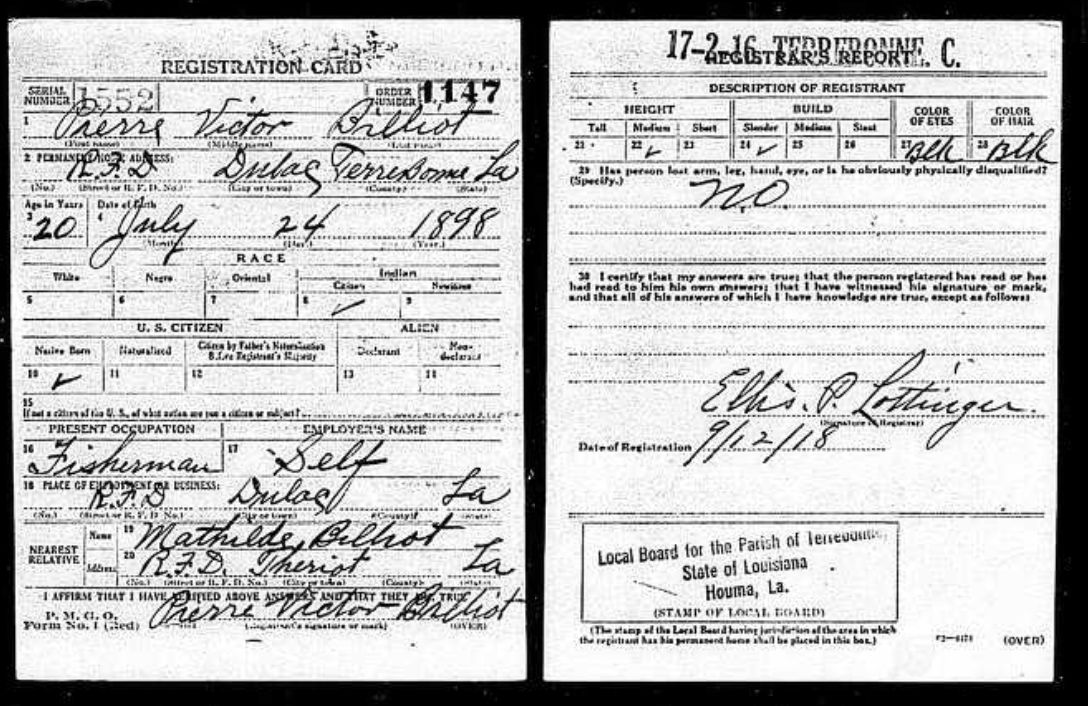 REGISTRATION CARD
SERIAL NUMBER 1552 ORDER NUMBER 1147
1 Pierre Victor Billiot
(First name) (Middle name) (Last name)
2 PERMANENT HOME ADDRESS:
R.F.D Dulac Terrebonne La
(No.) (Street or R. F. D. No.) (City or town) (County) (State)
Age in Years Date of Birth
3 20 4 July 24 1898
(Month) (Day) (Year)
RACE
White Negro Oriental Indian
Citizen Noncitizen
5 6 7 8 ✓ 9
U. S. CITIZEN ALIEN
Native Born Naturalized Citizen by Father's Naturalization Before Registrant's Majority Declarant Non-declarant
10 ✓ 11 12 13 14
15
If not a citizen of the U. S., of what nation are you a citizen or subject?
PRESENT OCCUPATION EMPLOYER'S NAME
16 Fisherman 17 Self
18 PLACE OF EMPLOYMENT OR BUSINESS:
R.F.D Dulac La
(No.) (Street or R. F. D. No.) (City or town) (County) (State)
NEAREST RELATIVE Name 19 Mathilde Billiot
Address 20 R.F.D. Theriot La
(No.) (Street or R. F. D. No.) (City or town) (County) (State)
I AFFIRM THAT I HAVE VERIFIED ABOVE ANSWERS AND THAT THEY ARE TRUE
P. M. G. O.
Form No. 1 (Red) Pierre Victor Billiot
(Registrant's signature or mark) (OVER)
17-2-16 TERREBONNE, C.
REGISTRAR'S REPORT
DESCRIPTION OF REGISTRANT
HEIGHT BUILD COLOR OF EYES COLOR OF HAIR
Tall Medium Short Slender Medium Stout
21 22 ✓ 23 24 ✓ 25 26 27 Blk 28 Blk
29 Has person lost arm, leg, hand, eye, or is he obviously physically disqualified?
(Specify.) NO.
30 I certify that my answers are true; that the person registered has read or has
had read to him his own answers; that I have witnessed his signature or mark,
and that all of his answers of which I have knowledge are true, except as follows:
Ellis. P. Lottinger.
(Signature of Registrar)
Date of Registration 9/12/18
Local Board for the Parish of Terrebonne,
State of Louisiana
Houma, La.
(STAMP OF LOCAL BOARD)
(The stamp of the Local Board having jurisdiction of the area in which
the registrant has his permanent home shall be placed in this box.)
(OVER)